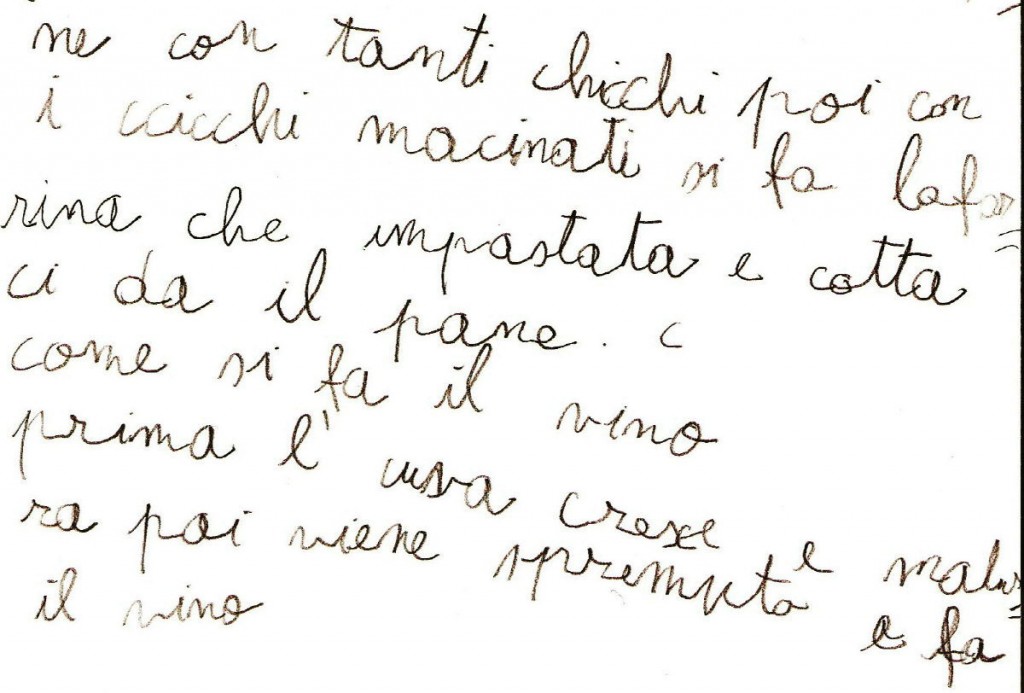 ne con tanti chicchi poi con
i ccicchi macinati si fa lafa=
rina che impastata e cotta
ci da il pane. c
come si fa il vino
prima l'uva cresce e matu=
ra poi viene spremuta e fa
il vino